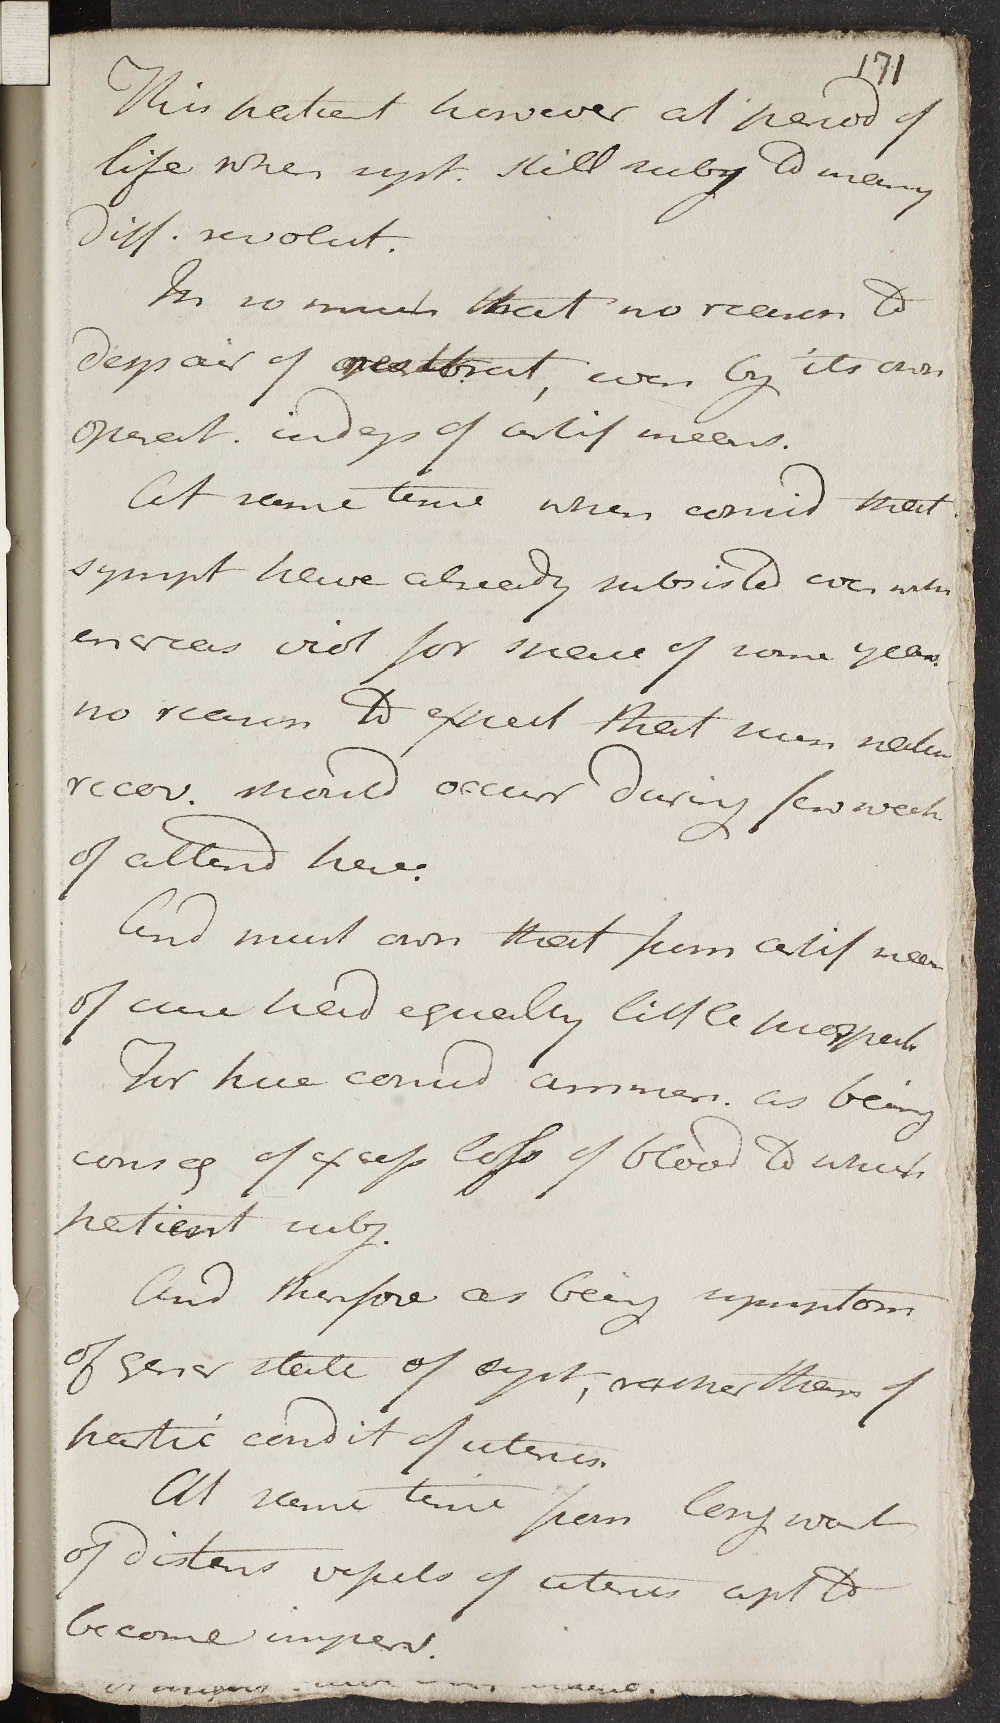 171
This patient however at period of
life when syst. still subj to many
diff. revolut.
In so much that no reason to
despair of restorat, even by its own
operat. indep of artif means.
At same time when consid that
sympt have already subsisted even with
increas viol for space of some years
no reason to expect that such natur
recov. should occurr during few week
of attend here.
And must own that from artif mean
of cure had equally little prospect.
For here consid amenor. as being
conseq of excess loss of blood to which
patient subj.
And therefore as being symptom
of gener state of syst, rather than of
partic condit of uterus.
At same time from long want
of distens vessels of uterus apt to
become imperv.